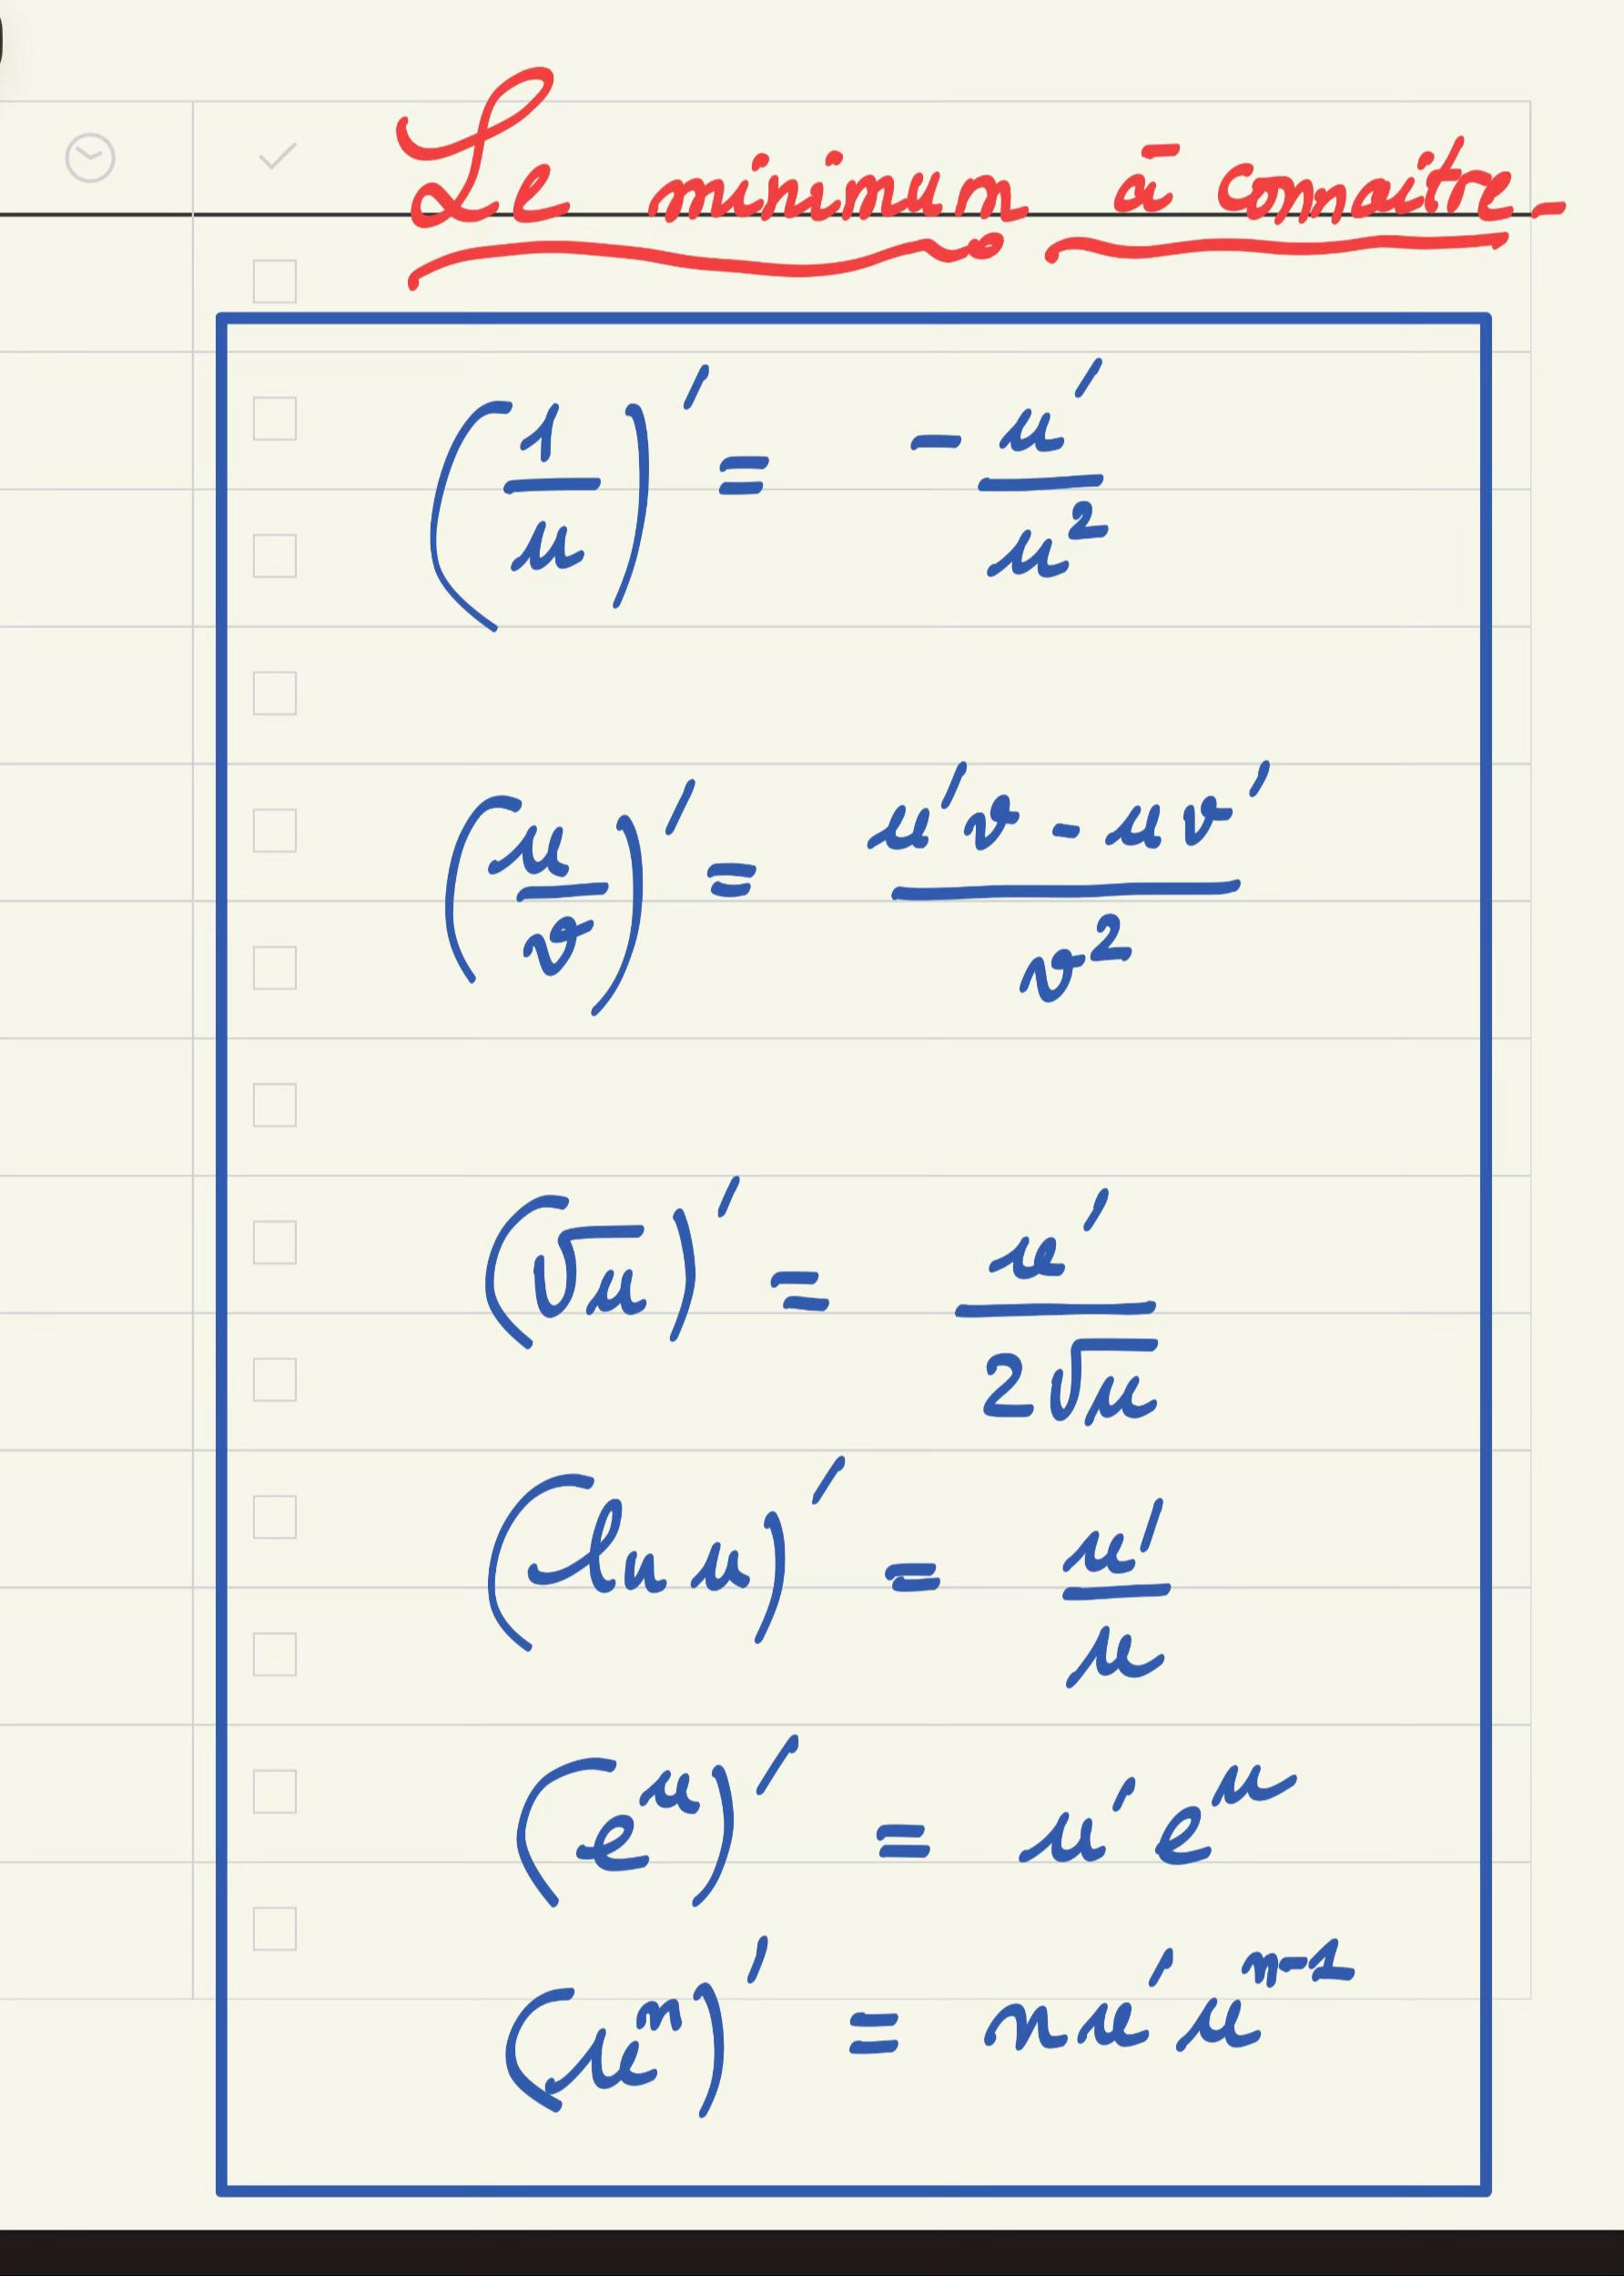 Le minimum à connaitre
(1/u)' = -u'/u²
(u/v)' = u'v - uv'/v²
(√u)' = u'/2√u
(ln u)' = u'/u
(eᵘ)' = u'eᵘ
(uⁿ)' = nu'uⁿ⁻¹